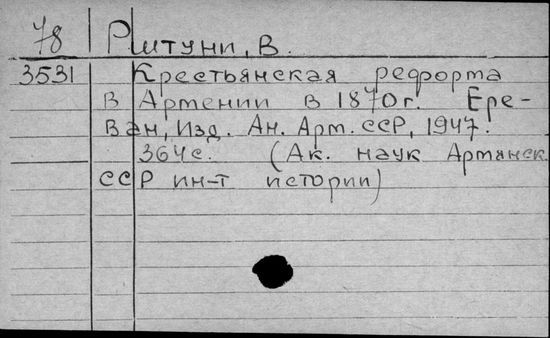 78 Рштуни, В.
3531 Крестьянская реформа
в Армении в 1870г. Ере-
ван, Изд. Ан. Арм. ССР, 1947.
364с. (Ак. наук Армянск.
ССР ин-т истории)